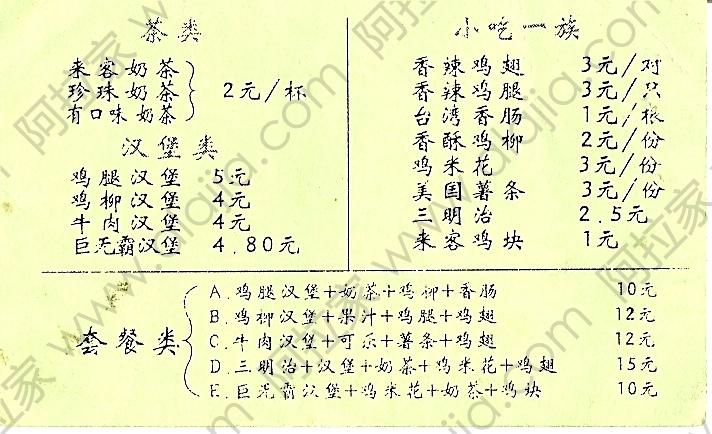 茶类
来客奶茶
珍珠奶茶 2元/杯
有口味奶茶
汉堡类
鸡腿汉堡 5元
鸡柳汉堡 4元
牛肉汉堡 4元
巨无霸汉堡 4.80元
小吃一族
香辣鸡翅 3元/对
香辣鸡腿 3元/只
台湾香肠 1元/根
香酥鸡柳 2元/份
鸡米花 3元/份
美国薯条 3元/份
三明治 2.5元
来客鸡块 1元
套餐类
A.鸡腿汉堡+奶茶+鸡柳+香肠 10元
B.鸡柳汉堡+果汁+鸡腿+鸡翅 12元
C.牛肉汉堡+可乐+薯条+鸡翅 12元
D.三明治+汉堡+奶茶+鸡米花+鸡翅 15元
E.巨无霸汉堡+鸡米花+奶茶+鸡块 10元
阿拉家 www.alajia.com